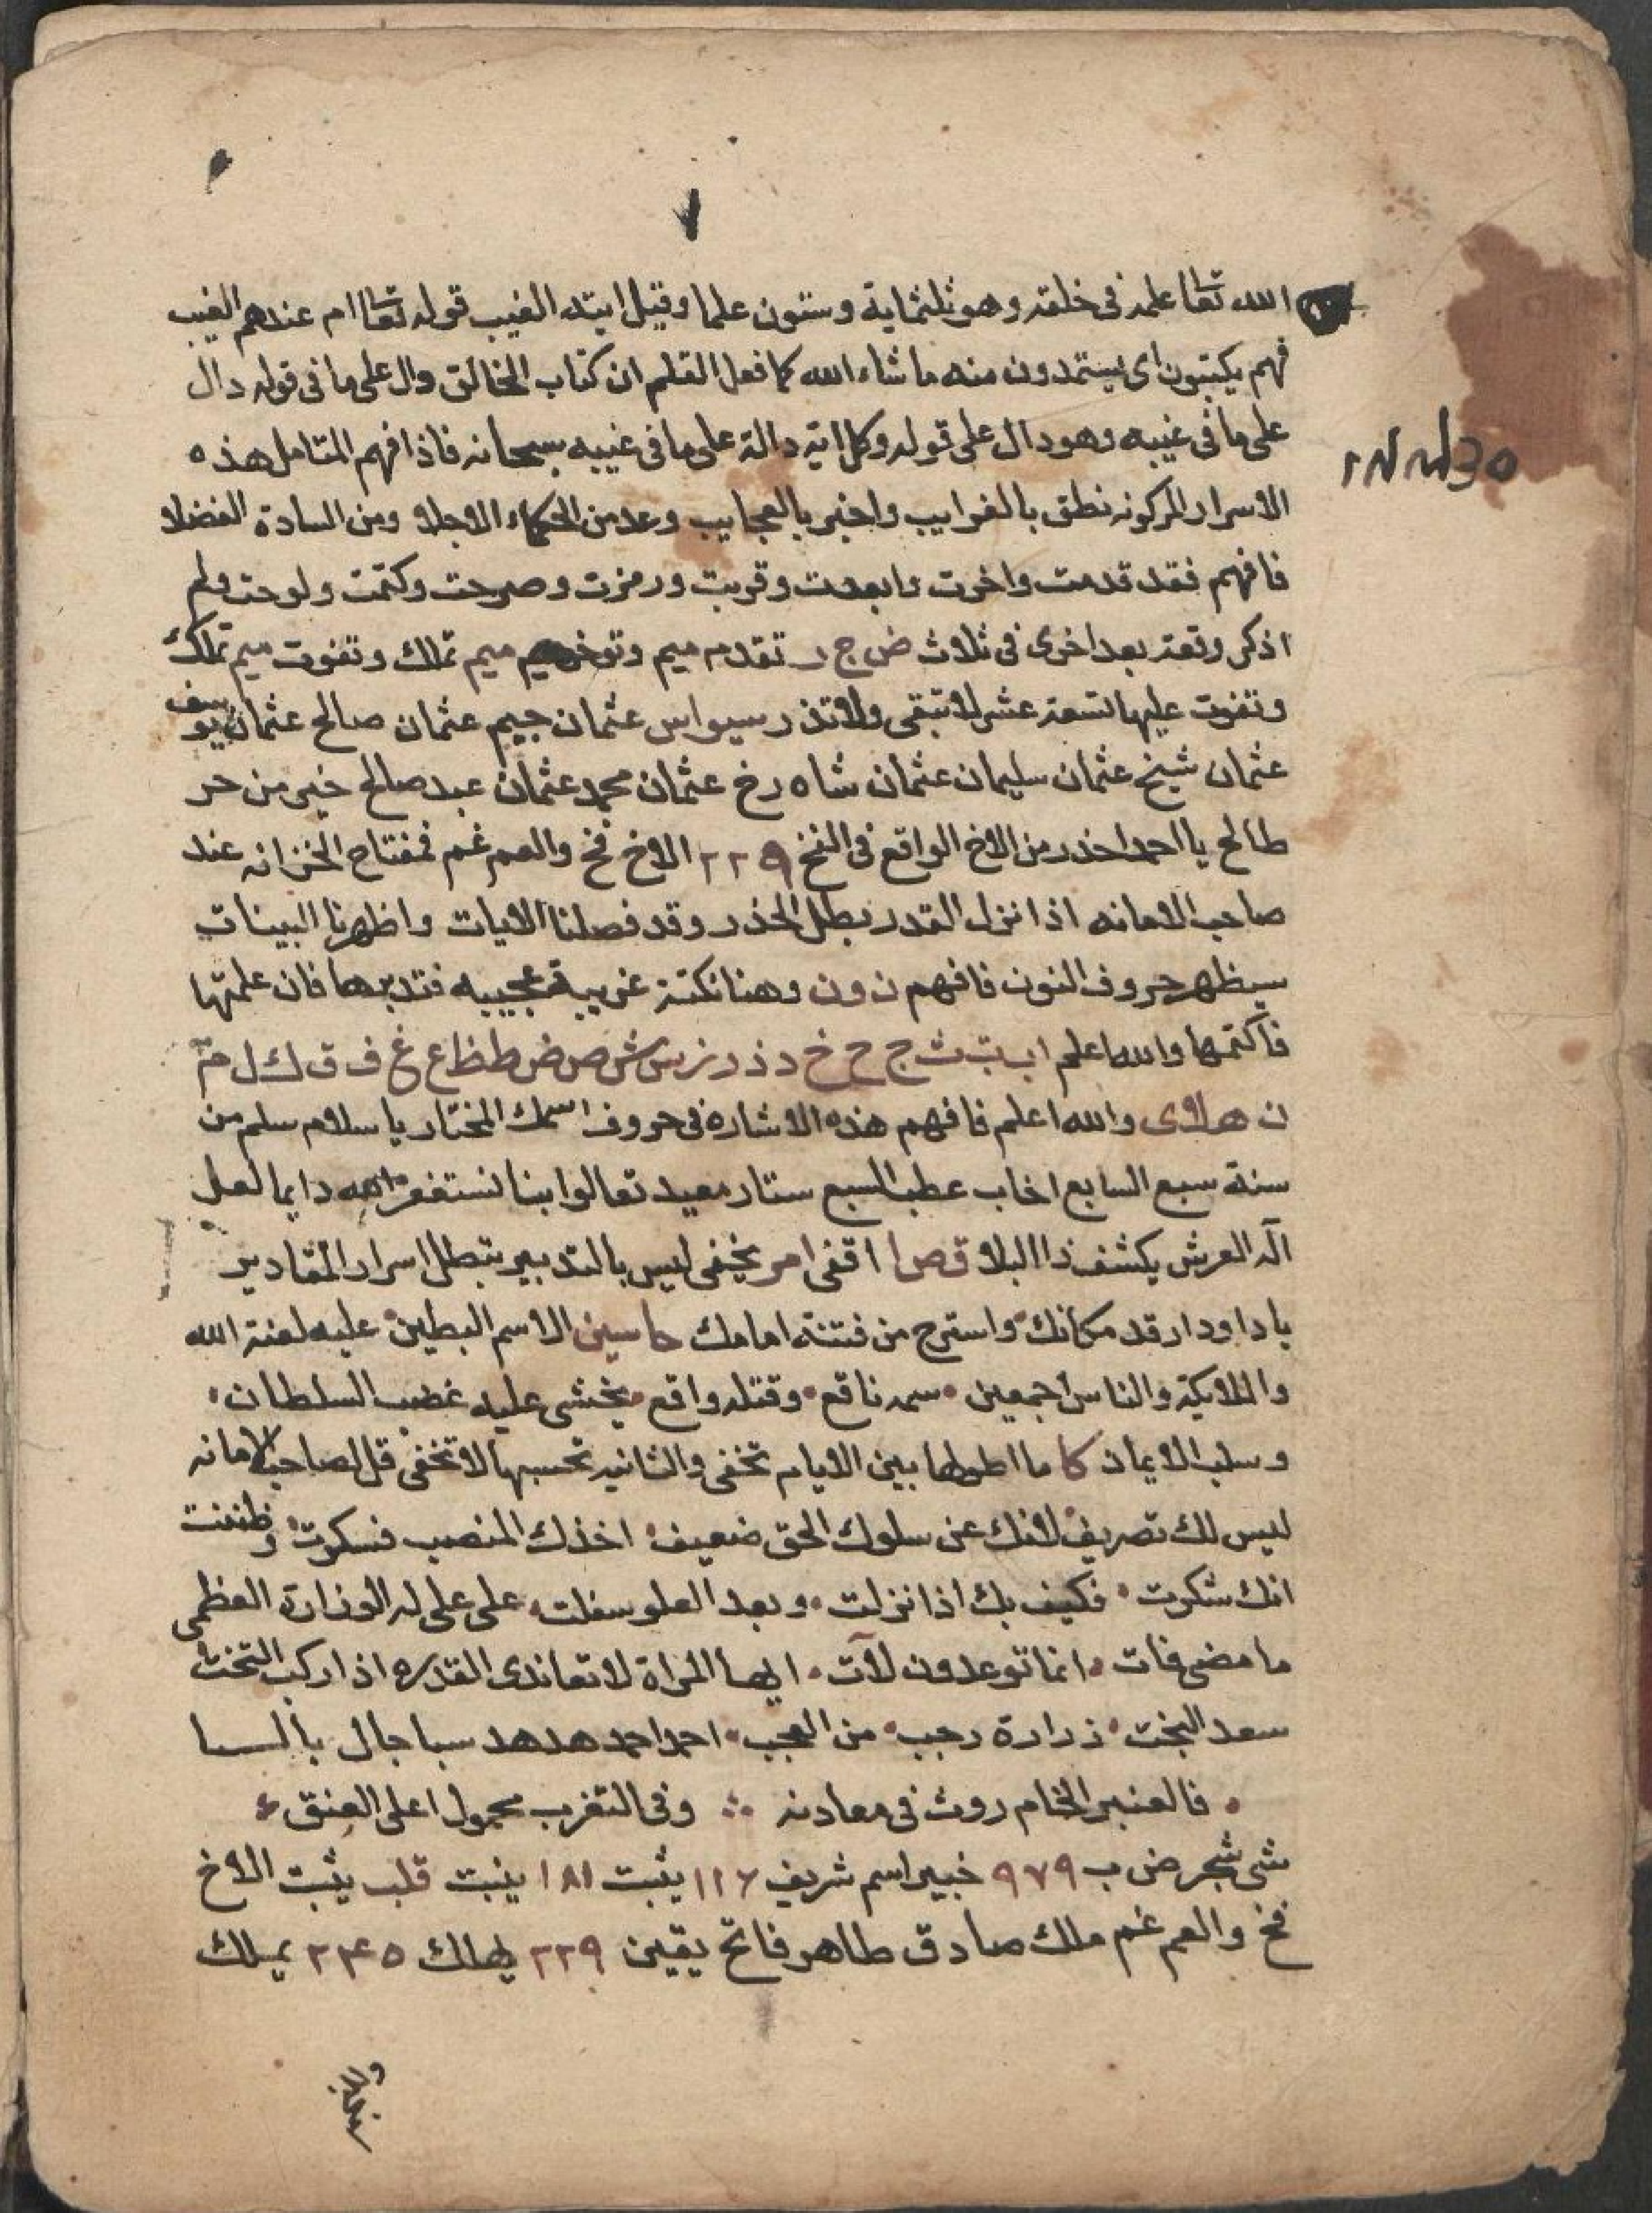 ٧
الله تعا علمه فى خلقه وهو ثلثماية وستون علما وقيل ايته الغيب قوله تعا ام عندهم الغيب
فهم يكتبون اى يستمدون منه ما شاء الله كما فعل القلم ان كتاب الخالق دال على ما فى قوله دال
على ما فى غيبه وهو دال على قوله وكل اية دالة على ما فى غيبه سبحانه فاذا فهم المتامل هذه
الاسرار المركونه نطق بالغرايب واخبر بالعجايب وعد من الحكماء الاجلاء ومن السادة الفضلا
فافهم فقد قدمت واخرت وابعدت وقربت ورمزت وصرحت وكتمت ولوحت ولم
اذكر وقعة بعد اخرى فى ثلاث ض ج ر تقدم ميم وتوخر ميم ميم تملك وتفوت ميم تملك
وتفوت عليها تسعة عشر لا تبقى ولا تذر سيواس عثمان جيم عثمان صالح عثمان يوسف
عثمان شيخ عثمان سليمان عثمان شاه رخ عثمان محمد عثمان عبد صالح خير من حر
طالح يا احمد احذر من الاخ الواقع فى الفخ ٢٢٩ الاخ فخ والعم غم فمفتاح الخزانه عند
صاحب الامانه اذا نزل القدر بطل الحذر وقد فصلنا الايات واظهرنا البينات
سيظهر حروف النون فافهم ن ون وهنا نكتة غريبة عجيبه فتدبرها فان علمتها
فاكتمها والله اعلم ا ب ت ث ج ح خ د ذ ر ز س ش ص ض ط ظ ع غ ف ق ك ل م
ن ه لا ى والله اعلم فافهم هذه الاشاره فى حروف اسمك المختار يا سلام سلم من
سنة سبع السابع اخاب عطب السبع ستار معيد تعالوا بنا نستغفر الله دايما لعل
اله العرش يكشف ذا البلا قصا اقفى امر يخفى ليس بالتدبير بتطل اسرار المقادير
يا داود ارقد مكانك واسترح من فتنة امامك حاسين الاسم البطين عليه لعنة الله
والملايكة والناس اجمعين سمه ناقع وقتله واقع يخشى عليه غضب السلطان
وسلب الايمان كا ما اطولها بين الايام تخفى والثانيه تحسبها لا تخفى قل لصاحب الامانه
ليس لك تصريف لانك عن سلوك الحق ضعيف اخذك المنصب فسكرت وظننت
انك شكرت فكيف بك اذا نزلت وبعد العلو سفلت على على له الوزارة العظمى
ما مضى فات انما توعدون لآت ايها المراة لا تعاندى القدره اذا ركب التخت
سعد البخت زرارة رجب من العجب احمد احمد هدهد سبا جال بالسبا
فالعنبر الخام روث فى معادنه وفى التغرب محمول اعلى العنق
شى شجر ض ب ٩٧٩ خبير اسم شريف ١١٢ يثبت ١٨١ ينبت قلب يثبت الاخ
فخ والعم غم ملك صادق طاهر فاتح يقين ٢٢٩ يهلك ٢٣٤٥ يملك